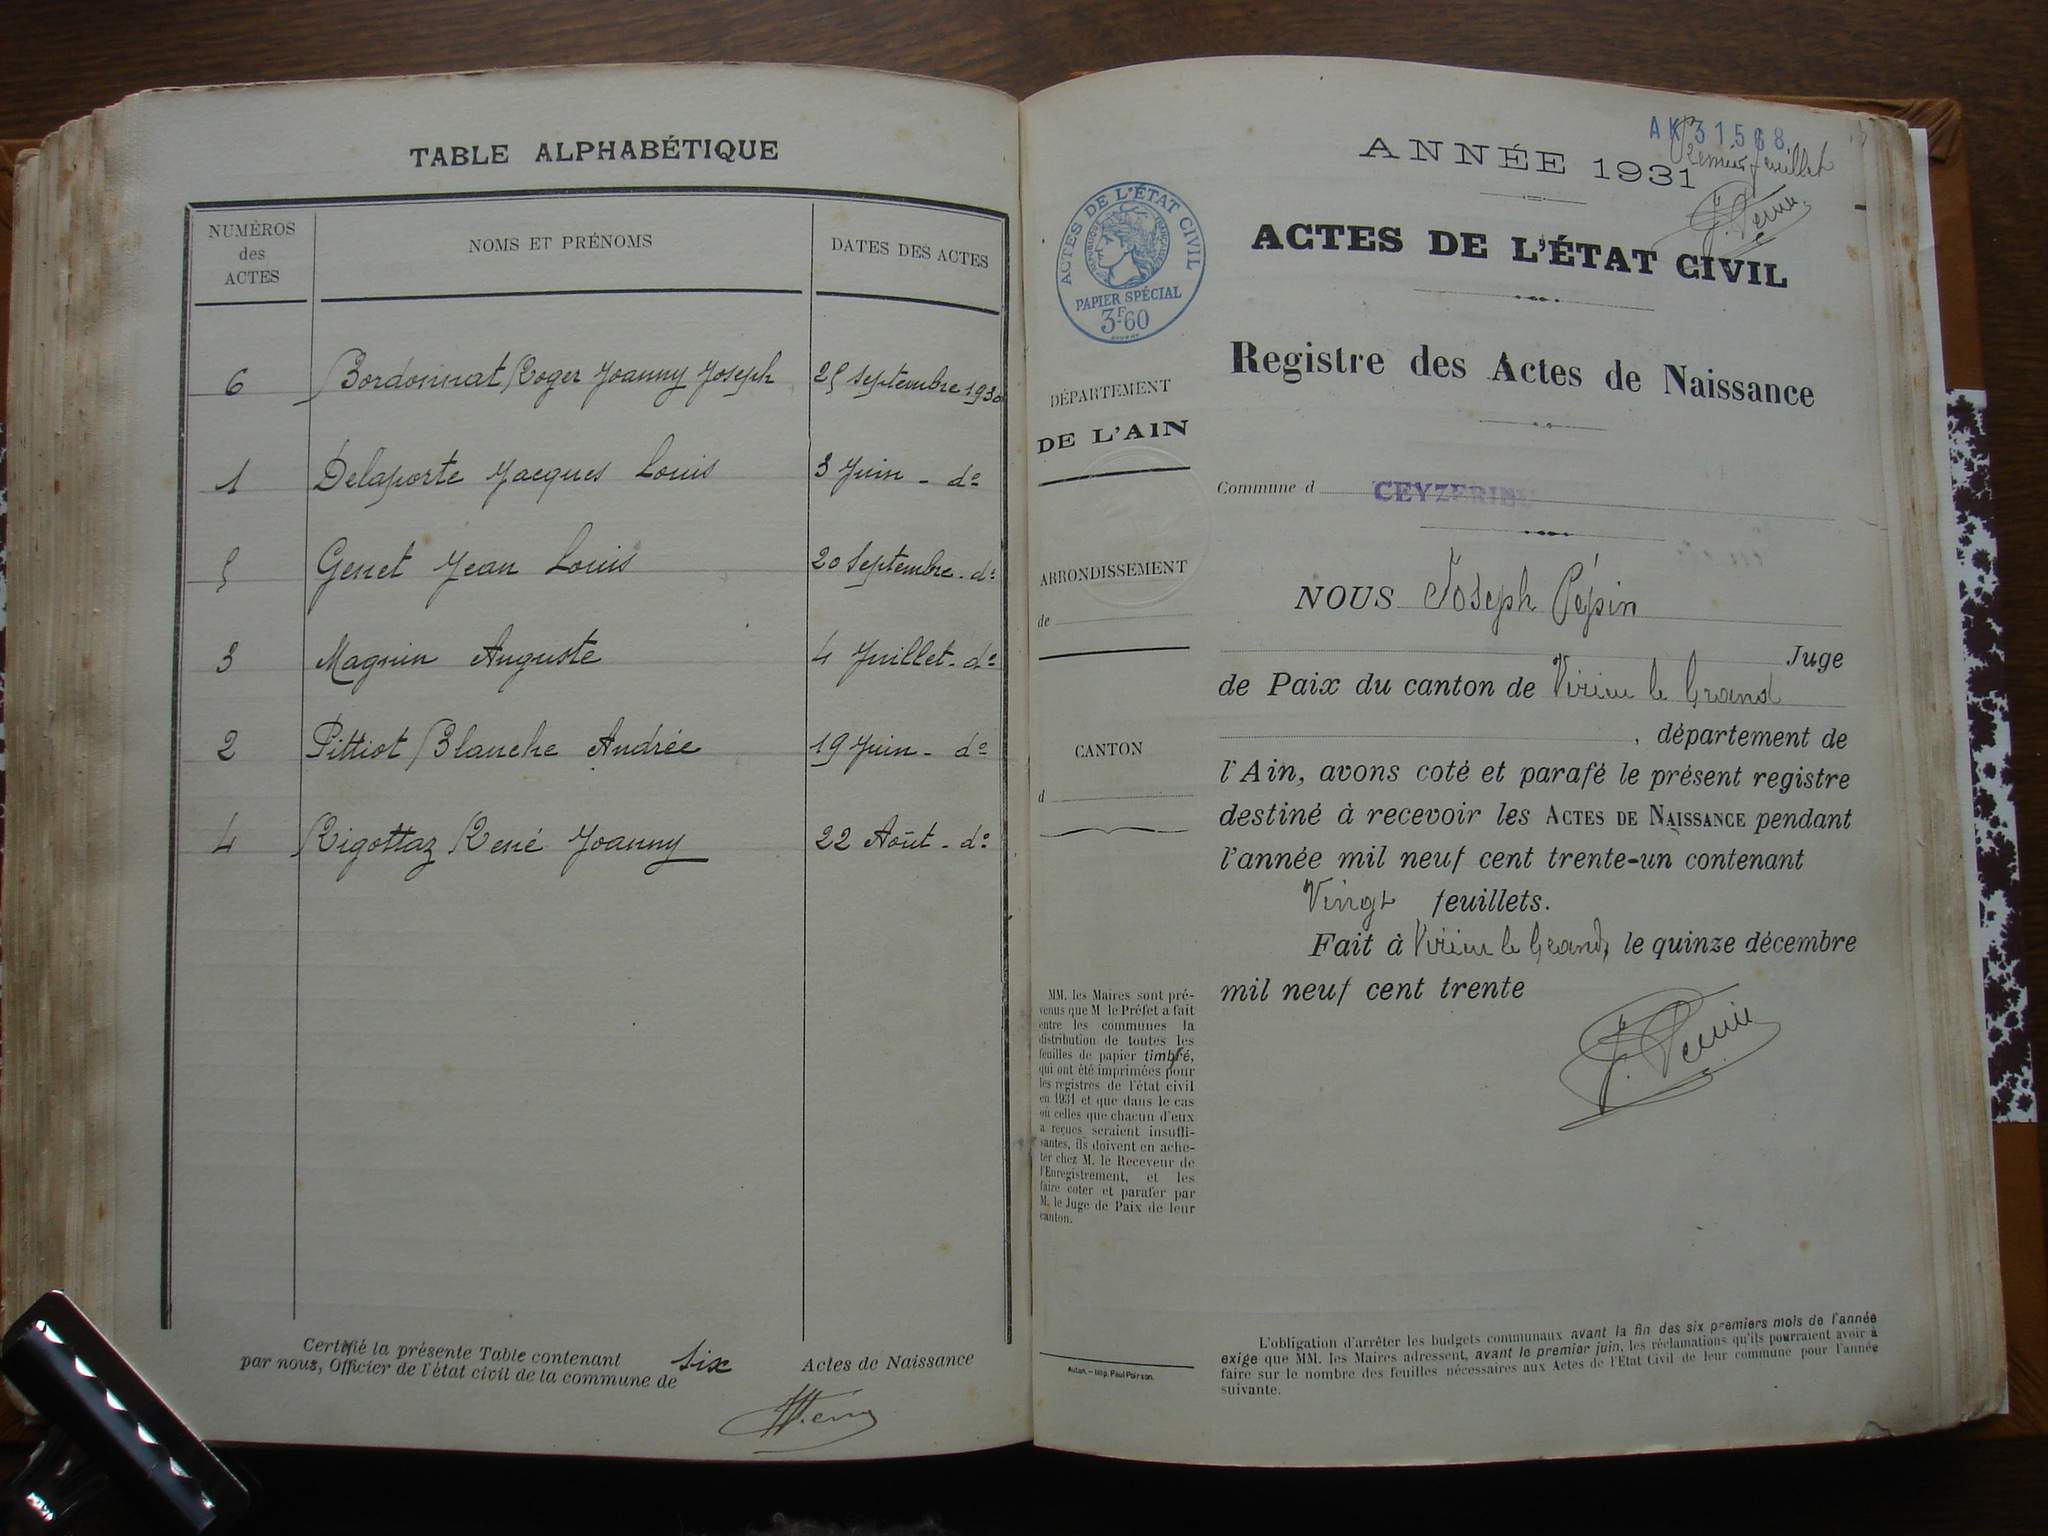 TABLE ALPHABÉTIQUE
NUMÉROS des ACTES NOMS ET PRÉNOMS DATES DES ACTES
6 Bordonnat Roger Joanny Joseph 25 septembre 1930
1 Delaporte Jacques Louis 3 Juin - do
5 Genet Jean Louis 20 Septembre - do
3 Magnin Auguste 4 Juillet - do
2 Pittiot Blanche Andrée 19 Juin - do
4 Rigottaz René Joanny 22 Août - do
Certifié la présente Table contenant six Actes de Naissance
par nous, Officier de l'état civil de la commune de
AK31568
Premier feuillet
ANNÉE 1931
ACTES DE L'ÉTAT CIVIL
RÉPUBLIQUE FRANÇAISE
PAPIER SPÉCIAL
3F.60
ACTES DE L'ÉTAT CIVIL
Registre des Actes de Naissance
DÉPARTEMENT
DE L'AIN
Commune d CEYZERIEU
ARRONDISSEMENT
de
CANTON
d
NOUS Joseph Pépin
Juge
de Paix du canton de Virieu le Grand
, département de
l'Ain, avons coté et parafé le présent registre
destiné à recevoir les ACTES DE NAISSANCE pendant
l'année mil neuf cent trente-un contenant
Vingt feuillets.
Fait à Virieu le Grand, le quinze décembre
mil neuf cent trente
MM. les Maires sont pré-
venus que M le Préfet a fait
entre les communes la
distribution de toutes les
feuilles de papier timbré,
qui ont été imprimées pour
les registres de l'état civil
en 1931 et que dans le cas
où celles que chacun d'eux
a reçues seraient insuffi-
santes, ils doivent en ache-
ter chez M. le Receveur de
l'Enregistrement, et les
faire coter et parafer par
M. le Juge de Paix de leur
canton.
Autun. — Imp. Paul Poirson.
L'obligation d'arrêter les budgets communaux avant la fin des six premiers mois de l'année
exige que MM. les Maires adressent, avant le premier juin, les réclamations qu'ils pourraient avoir à
faire sur le nombre des feuilles nécessaires aux Actes de l'Etat Civil de leur commune pour l'année
suivante.